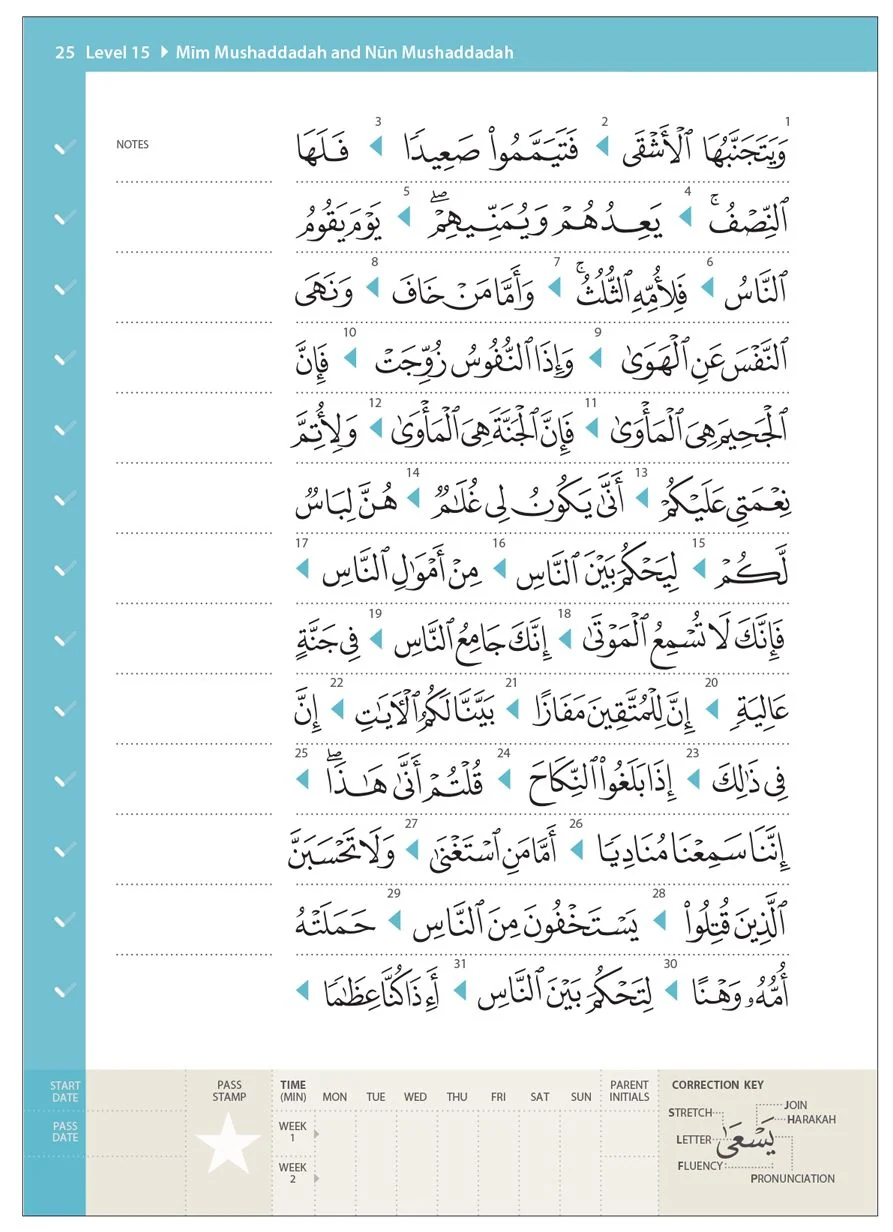 25 Level 15 Mīm Mushaddadah and Nūn Mushaddadah
1 2 3
NOTES
وَيَتَجَنَّبُهَا ٱلْأَشْقَى ◀ فَتَيَمَّمُوا۟ صَعِيدًا ◀ فَلَهَا
4 5
ٱلنِّصْفُ ۚ ◀ يَعِدُهُمْ وَيُمَنِّيهِمْ ۖ ◀ يَوْمَ يَقُومُ
6 7 8
ٱلنَّاسُ ◀ فَلِأُمِّهِ ٱلثُّلُثُ ۚ ◀ وَأَمَّا مَنْ خَافَ ◀ وَنَهَى
9 10
ٱلنَّفْسَ عَنِ ٱلْهَوَىٰ ◀ وَإِذَا ٱلنُّفُوسُ زُوِّجَتْ ◀ فَإِنَّ
11 12
ٱلْجَحِيمَ هِىَ ٱلْمَأْوَىٰ ◀ فَإِنَّ ٱلْجَنَّةَ هِىَ ٱلْمَأْوَىٰ ◀ وَلِأُتِمَّ
13 14
نِعْمَتِى عَلَيْكُمْ ◀ أَنَّىٰ يَكُونُ لِى غُلَـٰمٌ ◀ هُنَّ لِبَاسٌ
15 16 17
لَّكُمْ ◀ لِيَحْكُمَ بَيْنَ ٱلنَّاسِ ◀ مِنْ أَمْوَٰلِ ٱلنَّاسِ ◀
18 19
فَإِنَّكَ لَا تُسْمِعُ ٱلْمَوْتَىٰ ◀ إِنَّكَ جَامِعُ ٱلنَّاسِ ◀ فِى جَنَّةٍ
20 21 22
عَالِيَةٍ ◀ إِنَّ لِلْمُتَّقِينَ مَفَازًا ◀ بَيَّنَّا لَكُمُ ٱلْـَٔايَـٰتِ ◀ إِنَّ
23 24 25
فِى ذَٰلِكَ ◀ إِذَا بَلَغُوا۟ ٱلنِّكَاحَ ◀ قُلْتُمْ أَنَّىٰ هَـٰذَا ۖ ◀
26 27
إِنَّنَا سَمِعْنَا مُنَادِيًا ◀ أَمَّا مَنِ ٱسْتَغْنَىٰ ◀ وَلَا تَحْسَبَنَّ
28 29
ٱلَّذِينَ قُتِلُوا۟ ◀ يَسْتَخْفُونَ مِنَ ٱلنَّاسِ ◀ حَمَلَتْهُ
30 31
أُمُّهُۥ وَهْنًا ◀ لِتَحْكُمَ بَيْنَ ٱلنَّاسِ ◀ أَءِذَا كُنَّا عِظَـٰمًا ◀
START DATE
PASS DATE
PASS STAMP
TIME (MIN) MON TUE WED THU FRI SAT SUN PARENT INITIALS
WEEK 1
WEEK 2
CORRECTION KEY
STRETCH JOIN
HARAKAH
LETTER يَسْعَىٰ
FLUENCY
PRONUNCIATION